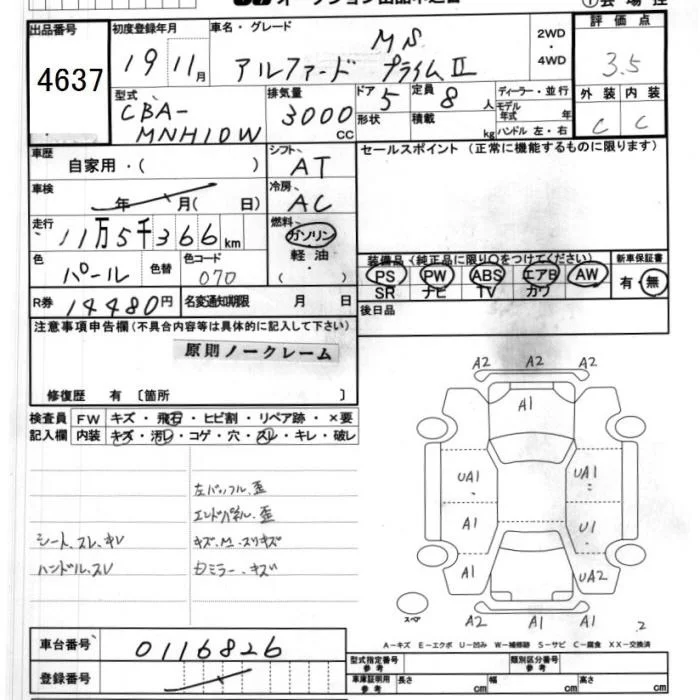 出品番号 4637
初度登録年月 19 11月
車名・グレード
アルファード MS プライムⅡ
2WD
・
4WD
評価点
3.5
型式
CBA-
MNH10W
排気量
3000 CC
ドア 5
定員 8 人
形状
積載 kg
ディーラー・並行
モデル年式 年
ハンドル 左・右
外装 内装
C C
車歴
自家用・( )
シフト
AT
セールスポイント(正常に機能するものに限ります)
車検
年 月( 日)
冷房
AC
走行
11万5千366km
燃料
ガソリン
軽油・
( )
色
パール
色替
色コード
070
装備品(純正品に限り○をつけてください)
新車保証書
PS PW ABS エアB AW
有・無
SR ナビ TV カワ
R券 14480円
名変通知期限 月 日
後日品
注意事項申告欄(不具合内容等は具体的に記入して下さい)
原則ノークレーム
修復歴 有 〔箇所 〕
検査員 FW キズ・飛石・ヒビ割・リペア跡・×要
記入欄 内装 キズ・汚レ・コゲ・穴・スレ・キレ・破レ
左バッフル、歪
エンドパネル、歪
シート、スレ、キレ
キズ、M、スリキズ
ハンドル、スレ
ミラー、キズ
A2 A2 A2
A1
UA1 UA1
A1 U1
A1 UA2
スペア
A2 A1 A1 2
A－キズ E－エクボ U－凹み W－補修跡 S－サビ C－腐食 XX－交換済
車台番号 0116826
登録番号
型式指定番号 参考
類別区分番号 参考
車庫証明用 参考
長さ cm 幅 cm 高さ cm